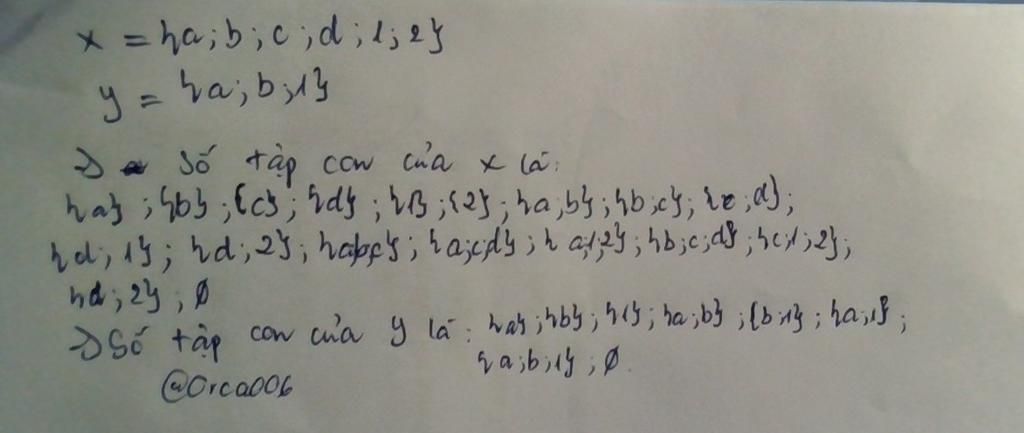 x = {a; b; c; d; 1; 2}
y = {a; b; 1}
=> Số tập con của x là:
{a}; {b}; {c}; {d}; {1}; {2}; {a; b}; {b; c}; {c; d};
{d; 1}; {d; 2}; {a;b;c}; {a;c;d}; {a;1;2}; {b;c;d}; {c;1;2};
{d; 2}; ∅
=> Số tập con của y là: {a}; {b}; {1}; {a;b}; {b;1}; {a;1};
{a;b;1}; ∅.
@Orca006